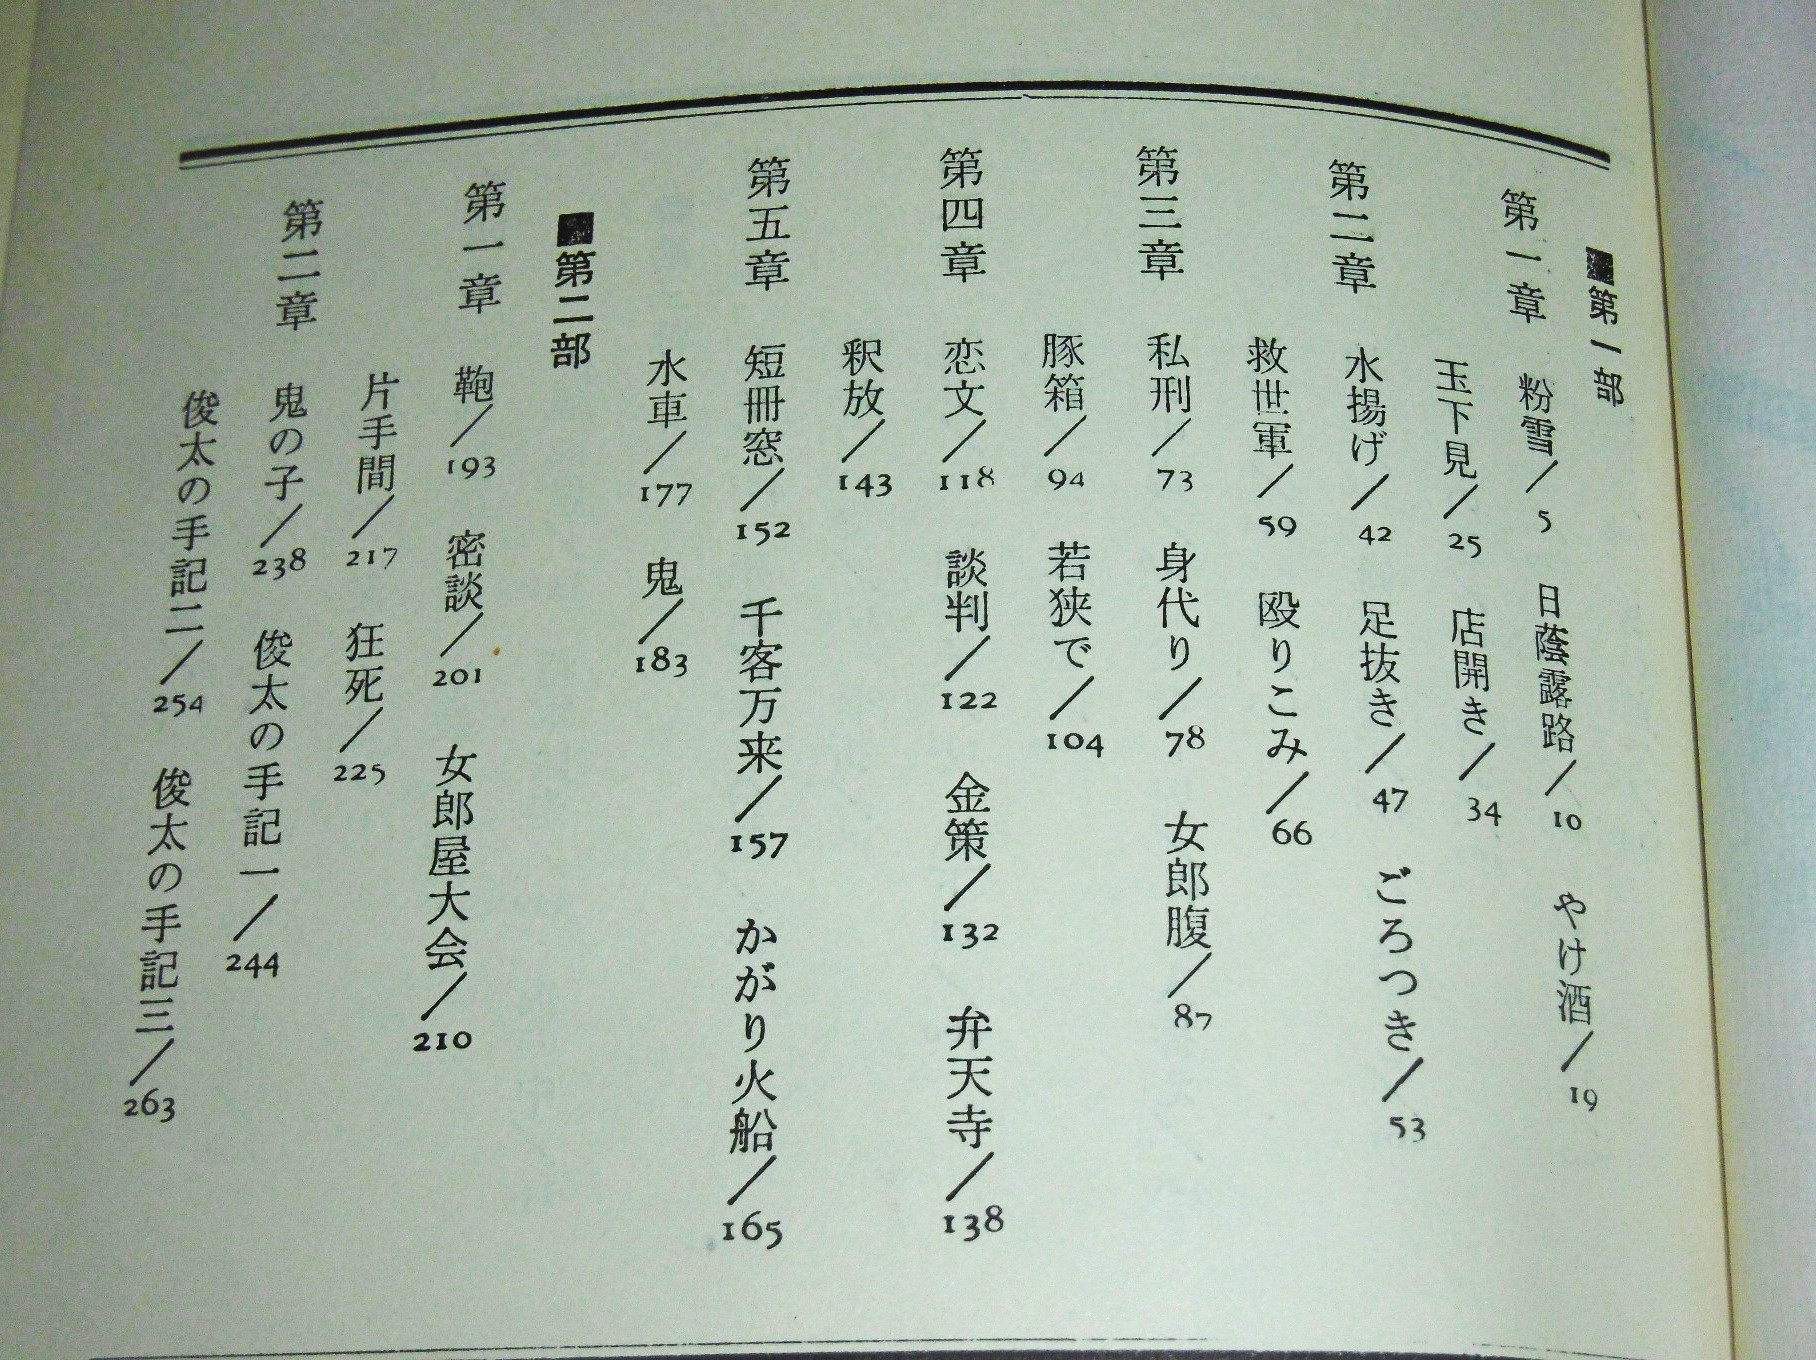 ■第一部
第一章 粉雪／5 日蔭露路／10 やけ酒／19
玉下見／25 店開き／34
第二章 水揚げ／42 足抜き／47 ごろつき／53
救世軍／59 殴りこみ／66
第三章 私刑／73 身代り／78 女郎腹／87
豚箱／94 若狭で／104
第四章 恋文／118 談判／122 金策／132 弁天寺／138
釈放／143
第五章 短冊窓／152 千客万来／157 かがり火船／165
水車／177 鬼／183
■第二部
第一章 鞄／193 密談／201 女郎屋大会／210
片手間／217 狂死／225
第二章 鬼の子／238 俊太の手記一／244
俊太の手記二／254 俊太の手記三／263